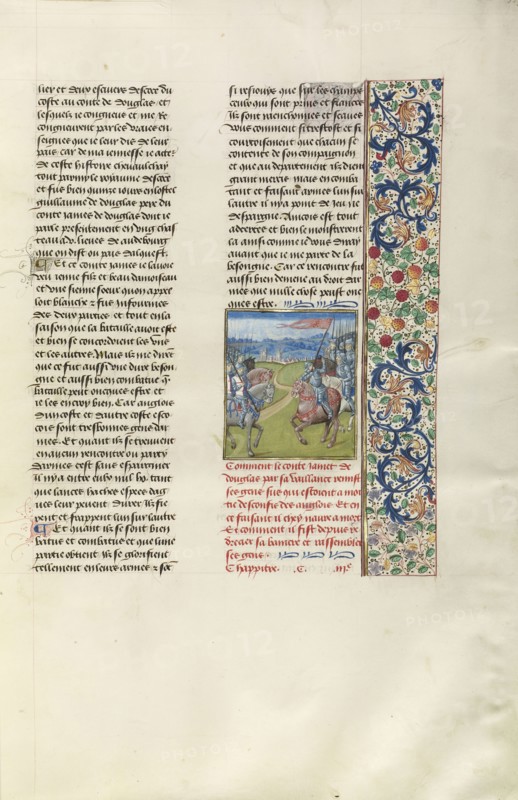 lier et deux escuiers descoce du
coste du conte de douglas et
lesquelz ie congneus et me re
congneurent par les vraies en
seignes que ie leur dis de leur
pais car de ma iennesse ie acte
de ceste histoire chevauchay
tout parmy le royaume descoce
et fus bien quinze iours en lostel
guillaume de douglas pere du
conte iames de douglas dont ie
parle presentement en ung chas
teau a .v. lieues de
que on dist ou pais dalquest.
Et ce conte iames ie lavoie
veu ienne filz et beau damoiseau
et une sienne seur quon appel
loit blanche z fus infourmez
des deux parties et tout en la
saison que la bataille avoit este
et bien se concordoient les uns
et les autres. Mais ilz me dirent
que ce fut aussi une dure beson
gne et aussi bien combatue que
bataille peut oncques estre et
ie les en croy bien. Car anglois
dun coste et dautre coste esco
cois sont tresbonnes gens dar
mes. Et quant ilz se treuvent
en aucun rencontre ou party
darmes cest sans espargnier
il ny a entre eulx nul ho tant
que lances haches espees dag
ues leur pevent durer ilz fie
rent et frappent lun sur lautre
Et quant ilz se sont bien
batus et combatus et que lune
partie obtient ilz se glorifient
tellement en leurs armes z sont
si resiouys que sur les champs
ceulx qui sont prins et fiancez
ilz sont ranchonnez et scavez
vous comment si trestost et si
courtoisement que chacun se
contente de son compaignon
et que au departement ilz dient
grant mercis mais en comba
tant et faisant armes lun sur
lautre il ny a point de ieu ne
despargne. Ancois est tout
adcertes et bien le monstrerent
la ainsi comme ie vous diray
avant que ie me parte de la
besongne. Car ce rencontre fut
aussi bien demene au droit dar
mes que nulle chose peust onc
ques estre.
Comment le conte iames de
douglas par sa vaillance remist
ses gens sus qui estoient a moi
tie desconfis des anglois Et en
ce faisant il chey navre a mort
Et comment il fist depuis re
drecer sa baniere et rassembler
ses gens.
Chappitre. .C. .iiie
PHOTO12